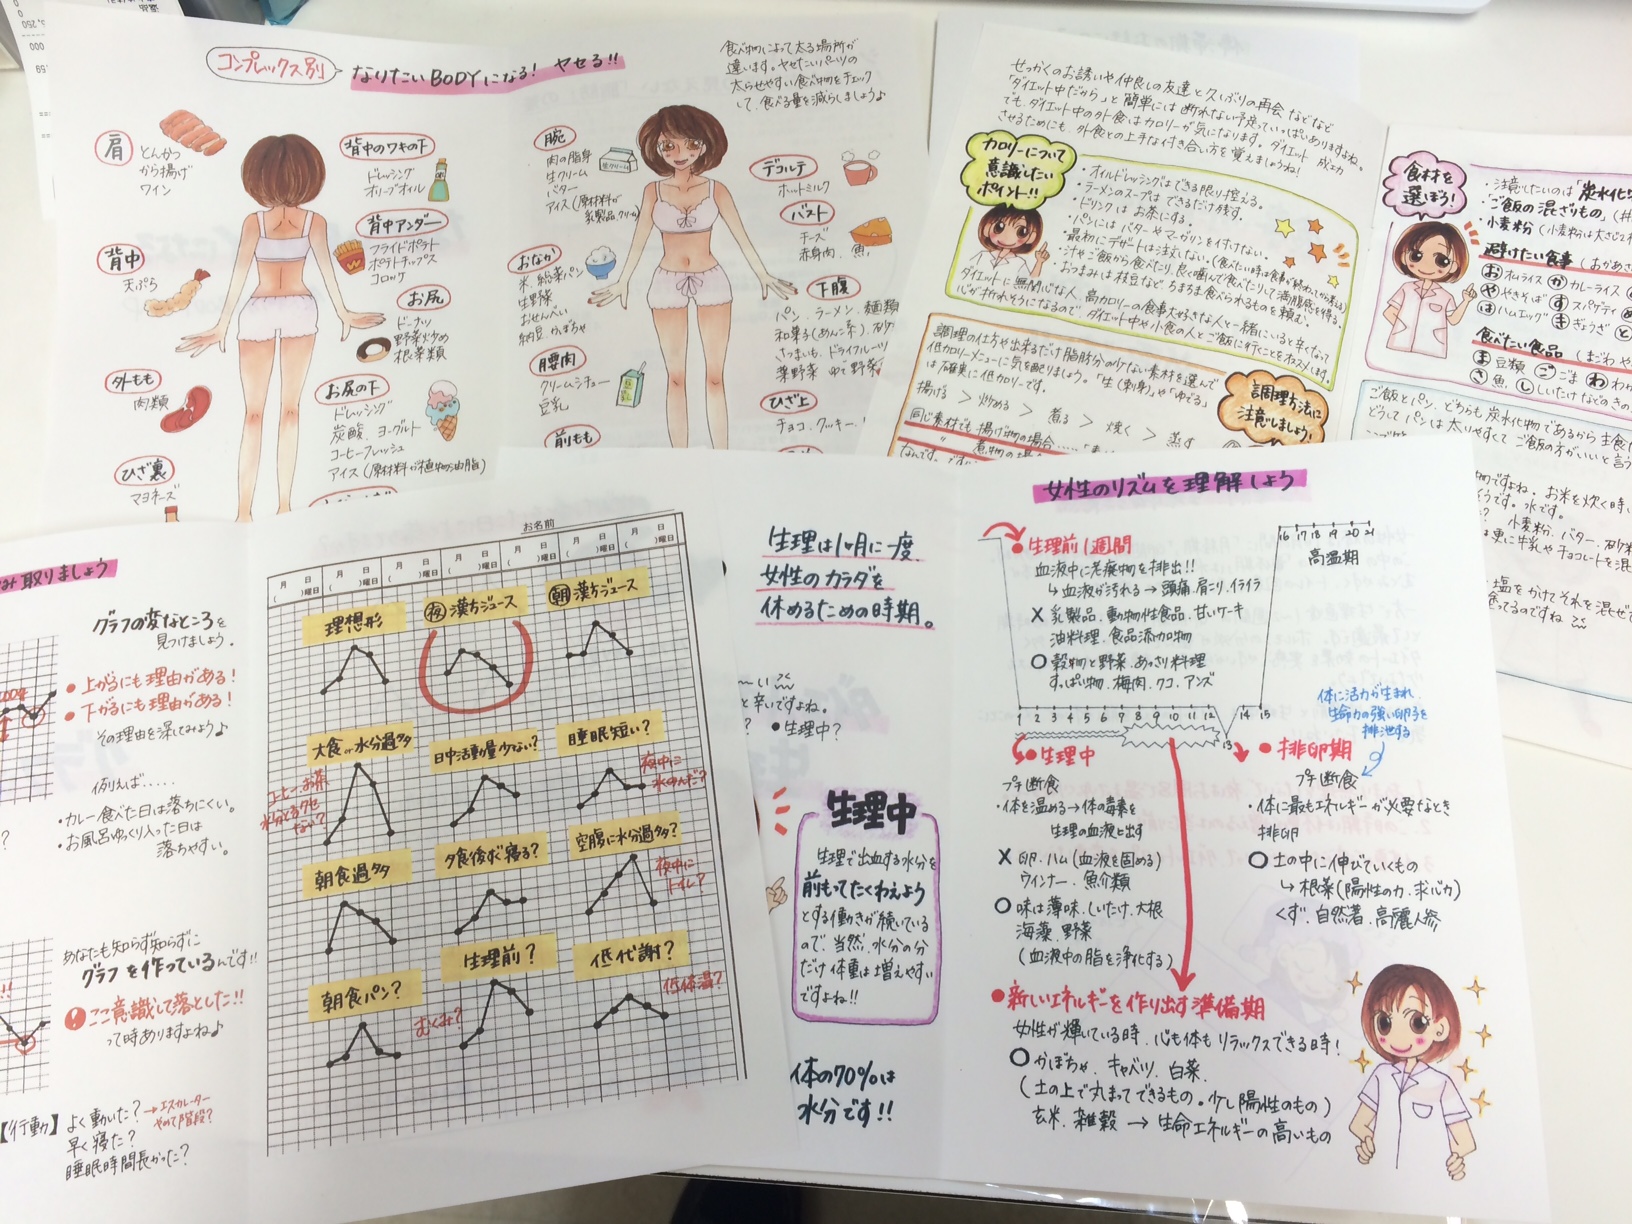 コンプレックス別
なりたいBODYになる！ ヤセる!!
食べ物によって太る場所が
違います。ヤセたいパーツの
太らせやすい食べ物をチェック
して、食べる量を減らしましょう♪
肩
とんかつ
から揚げ
ワイン
背中
天ぷら
外もも
肉類
ひざ裏
マヨネーズ
背中のワキの下
ドレッシング
オリーブオイル
背中アンダー
フライドポテト
ポテトチップス
コロッケ
お尻
ドーナツ
野菜炒め
根菜類
お尻の下
ドレッシング
炭酸、ヨーグルト
コーヒーフレッシュ
アイス(原材料が植物油脂)
腕
肉の脂身
生クリーム
バター
アイス(原材料が
乳製品、クリーム)
おなか
米、総菜パン
生野菜
おせんべい
納豆、かぼちゃ
腰肉
クリームシチュー
豆乳
前もも
デコルテ
ホットミルク
バスト
チーズ
赤身肉、魚
下腹
パン、ラーメン、麺類
和菓子(あんこ系)、砂糖
さつまいも、ドライフルーツ
葉野菜 ゆで野菜
ひざ上
チョコ、クッキー、
せっかくのお誘いや仲良しの友達と久しぶりの再会などなど
「ダイエット中だから」と簡単には断れない予定っていっぱいありますよね。
でも、ダイエット中の外食はカロリーが気になります。ダイエット成功
させるためにも、外食との上手な付き合い方を覚えましょうね!
カロリーについて
意識したい
ポイント!!
・オイルドレッシングはできる限り控える。
・ラーメンのスープはできるだけ残す。
・ドリンクはお茶にする。
・パンにはバターやマーガリンを付けない。
・最初にデザートは注文しない。(食べたい時は食事が終わってから考える)
・汁やご飯から食べたり、良く噛んで食べたりして満腹感を得る。
・おつまみは枝豆などちまちま食べられるものを頼む。
ダイエットに無関心な人、高カロリーの食事大好きな人と一緒にいると辛くなって
心が折れそうになるので、ダイエット中や小食の人とご飯に行くことをオススメします。
調理の仕方や出来るだけ脂肪分の少ない素材を選んで
低カロリーメニューに気を配りましょう。「生(刺身)」や「ゆでる」
は確実に低カロリーです。
揚げる ＞ 炒める ＞ 煮る ＞ 焼く ＞ 蒸す
同じ素材でも揚げ物の場合……
調理方法に
注意しましょう!
食材を
選ぼう!
・注意したいのは「炭水化
・ご飯の混ざりもの」
・小麦粉
避けたい食事
お オムライス か カレーライス
や やきそば す スパゲティ
は ハムエッグ き ぎょうざ と
食べたい食品
ま 豆類 ご ごま わ わか
さ 魚 し しいたけなどのきの
ご飯とパン、どちらも炭水化物であるから主食
どうしてパンは太りやすくてご飯の方がいいと言う
み取りましょう
グラフの変なところを
見つけましょう。
●上がるにも理由がある!
●下がるにも理由がある!
その理由を探してみよう♪
例えば……
・カレー食べた日は落ちにくい。
・お風呂ゆっくり入った日は
落ちやすい。
あなたも知らず知らずに
グラフを作っているんです!!
ここ意識して落とした!!
って時ありますよね♪
【行動】よく動いた?
→エスカレーター
やめて階段?
早く寝た?
睡眠時間長かった?
お名前
月 日
( )曜日
月 日
( )曜日
月 日
( )曜日
月 日
( )曜日
月 日
( )曜日
月 日
( )曜日
月 日
( )曜日
理想形
夜 漢方ジュース
朝 漢方ジュース
大食or水分過多
日中活動量少ない?
睡眠短い?
コーヒー、お茶
水分とるクセ
ない?
夜中に
水のんだ?
朝食過多
夕食後すぐ寝る?
空腹に水分過多?
夜中に
トイレ?
朝食パン?
生理前?
低代謝?
むくみ?
低体温?
生理は1ヶ月に一度
女性のカラダを
休めるための時期。
と辛いですよね。
●生理中?
生理中
生理で出血する水分を
前もってたくわえよう
とする働きが続いている
ので、当然、水分の分
だけ体重は増えやすい
ですよね!!
体の70%は
水分です!!
女性のリズムを理解しよう
●生理前1週間
血液中に老廃物を排出!!
↳血液が汚れる→頭痛、肩こり、イライラ
× 乳製品、動物性食品、甘いケーキ
油料理、食品添加物
○ 穀物と野菜、あっさり料理
すっぱい物、梅肉、クコ、アンズ
16 17 18 19 20 21
高温期
1 2 3 4 5 6 7 8 9 10 11 12
13
14 15
体に活力が生まれ、
生命力の強い卵子を
排泄する
●生理中
プチ断食
・体を温める→体の毒素を
生理の血液と出す
× 卵、ハム(血液を固める)
ウィンナー、魚介類
○ 味は薄味、しいたけ、大根
海藻、野菜
(血液中の脂を浄化する)
●排卵期
プチ断食
・体に最もエネルギーが必要なとき
排卵
○ 土の中に伸びていくもの
↳ 根菜(陽性の力、求心力)
くず、自然薯、高麗人参
●新しいエネルギーを作り出す準備期
女性が輝いている時、心も体もリラックスできる時!
○ かぼちゃ、キャベツ、白菜、
(土の上で丸まってできるもの。少し陽性のもの)
玄米、雑穀 → 生命エネルギーの高いもの